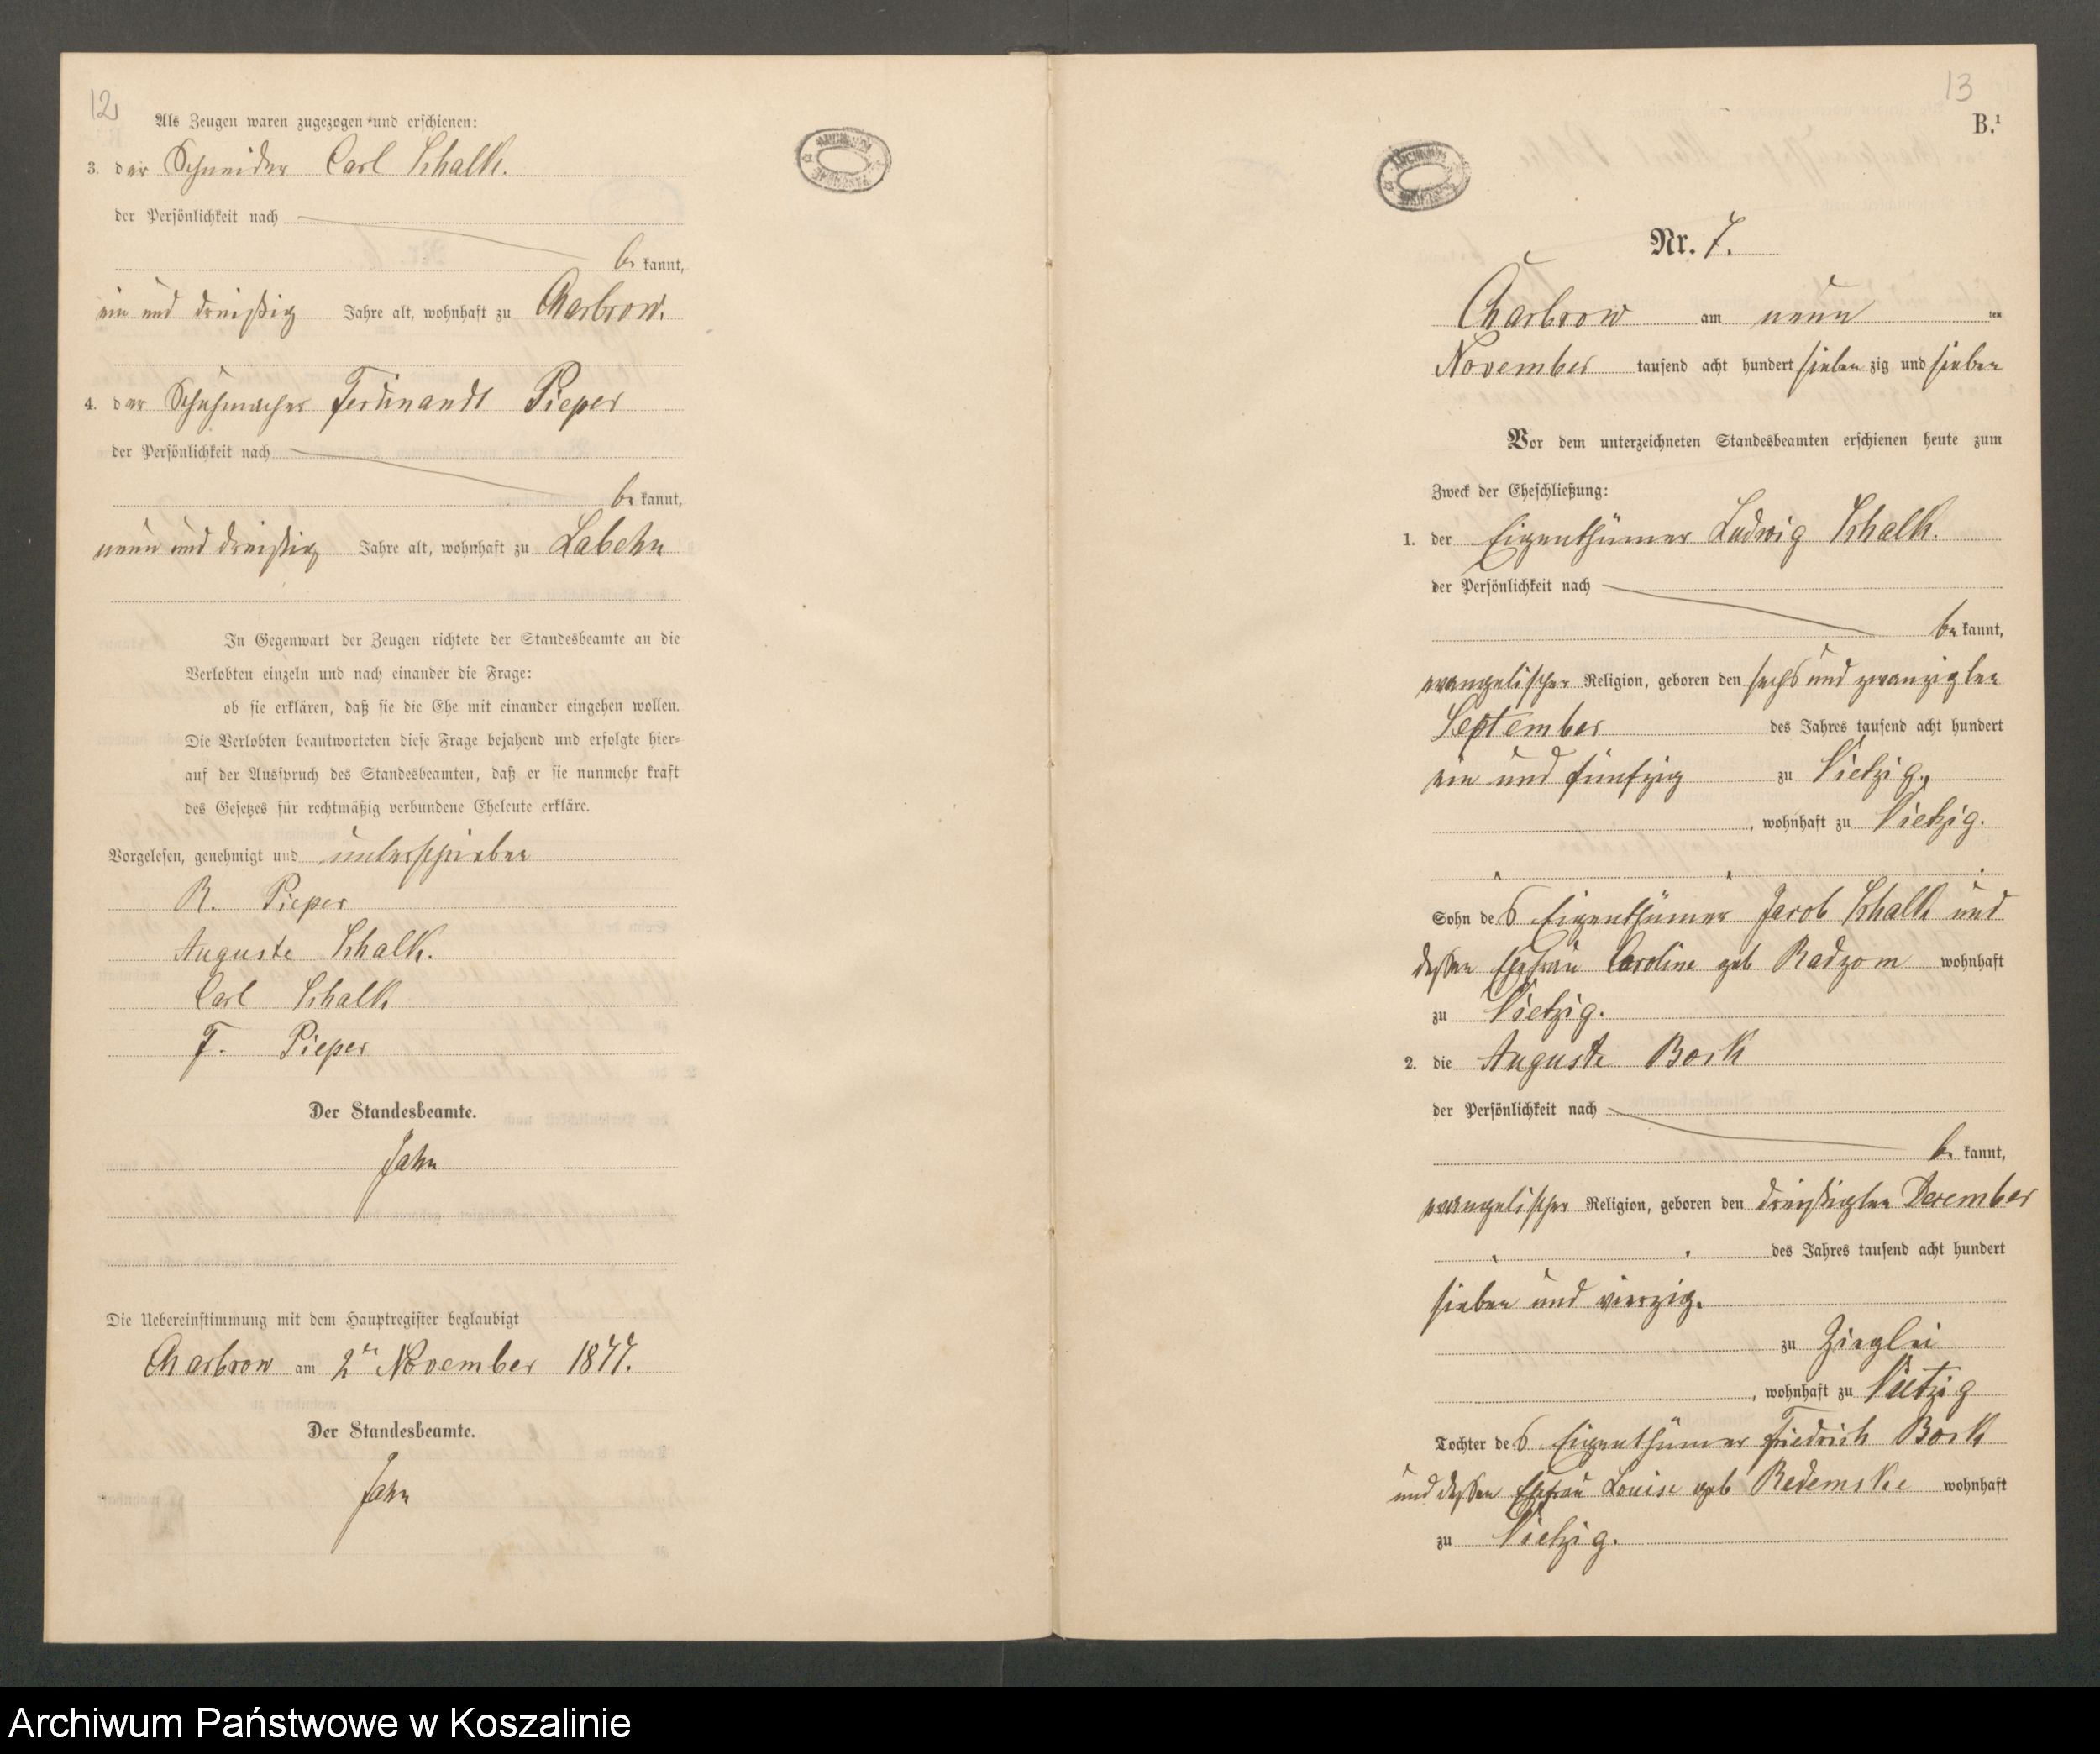 12
Als Zeugen waren zugezogen und erschienen:
3. der Schneider Carl Schalk.
der Persönlichkeit nach
be kannt,
ein und dreißig Jahre alt, wohnhaft zu Charbrow.
4. der Schuhmacher Ferdinandt Pieper
der Persönlichkeit nach
be kannt,
neun und dreißig Jahre alt, wohnhaft zu Labehn
In Gegenwart der Zeugen richtete der Standesbeamte an die
Verlobten einzeln und nach einander die Frage:
ob sie erklären, daß sie die Ehe mit einander eingehen wollen.
Die Verlobten beantworteten diese Frage bejahend und erfolgte hier-
auf der Ausspruch des Standesbeamten, daß er sie nunmehr kraft
des Gesetzes für rechtmäßig verbundene Eheleute erkläre.
Vorgelesen, genehmigt und unterschrieben
R. Pieper
Auguste Schalk.
Carl Schalk
F. Pieper
Der Standesbeamte.
Jahn
Die Uebereinstimmung mit dem Hauptregister beglaubigt
Charbrow am 2ten November 1877.
Der Standesbeamte.
Jahn
13
B.¹
Nr. 7.
Charbrow am neun ten
November tausend acht hundert sieben zig und sieben
Vor dem unterzeichneten Standesbeamten erschienen heute zum
Zweck der Eheschließung:
1. der Eigenthümer Ludwig Schalk.
der Persönlichkeit nach
be kannt,
evangelischer Religion, geboren den sechs und zwanzigsten
September des Jahres tausend acht hundert
ein und fünfzig zu Vietzig,
, wohnhaft zu Vietzig.
Sohn des Eigenthümer Jacob Schalk und
dessen Ehefrau Caroline geb Radzom wohnhaft
zu Vietzig.
2. die Auguste Bork
der Persönlichkeit nach
be kannt,
evangelischer Religion, geboren den dreißigsten December
des Jahres tausend acht hundert
sieben und vierzig.
zu Zieglei
, wohnhaft zu Vietzig
Tochter des Eigenthümer Friedrich Bork
und dessen Ehefrau Louise geb Redemske wohnhaft
zu Vietzig.
Archiwum Państwowe w Koszalinie